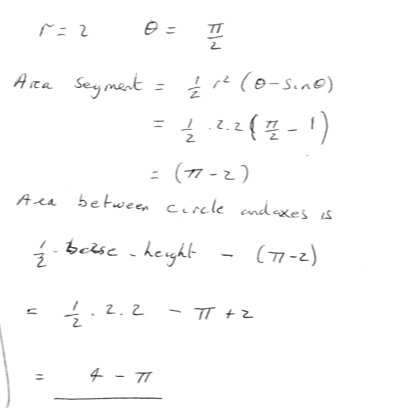 r = 2 θ = π/2
Area Segment = 1/2 r² (θ - sinθ)
= 1/2 . 2 . 2 (π/2 - 1)
= (π - 2)
Area between circle and axes is
1/2 . base . height - (π - 2)
= 1/2 . 2 . 2 - π + 2
= 4 - π